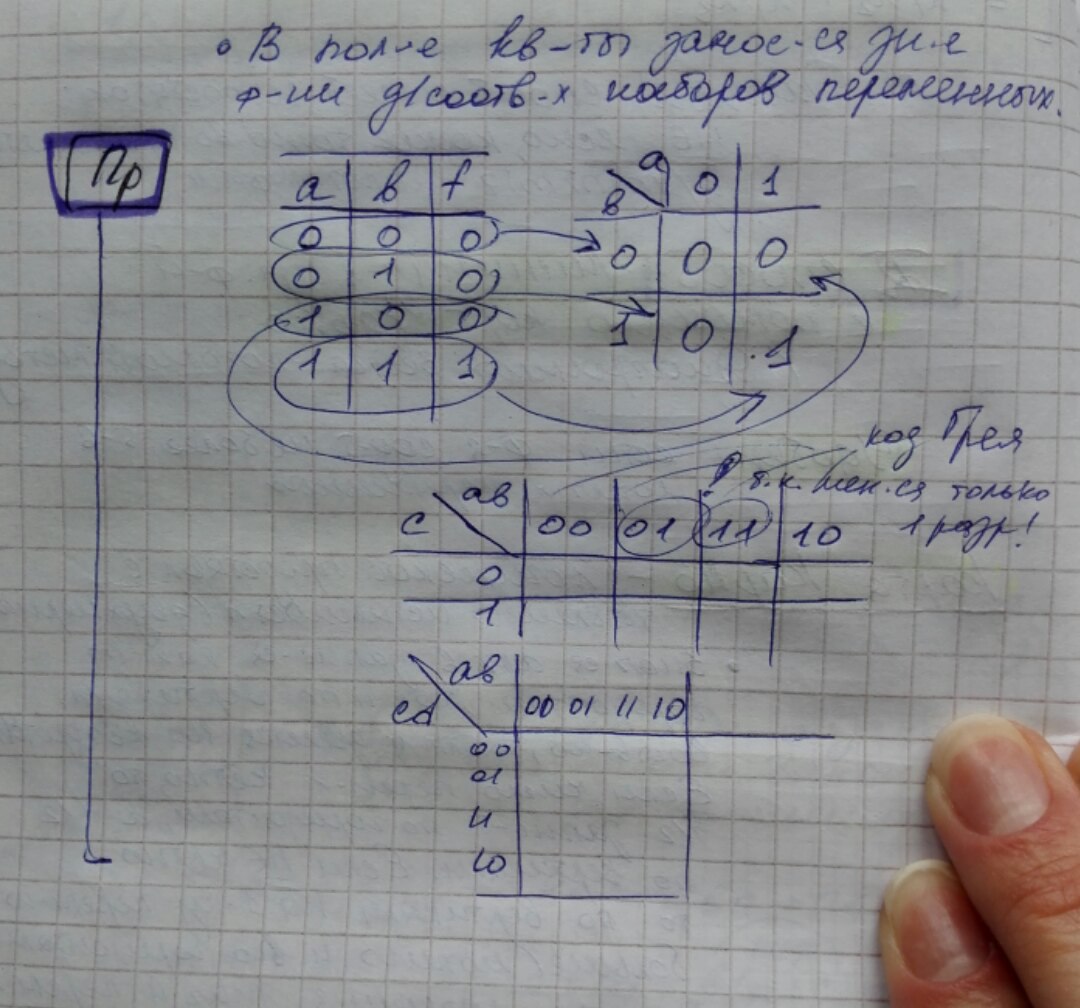 • В пол-е кв-ты занос-ся зн-е
ф-ции д/соотв-х наборов переменных.
Пр
a b f
0 0 0
0 1 0
1 0 0
1 1 1
a 0 1
b
0 0 0
1 0 1
код Грея
т.к. мен-ся только
1 разр!
ab
c 00 01 11 10
0
1
ab
cd 00 01 11 10
00
01
11
10